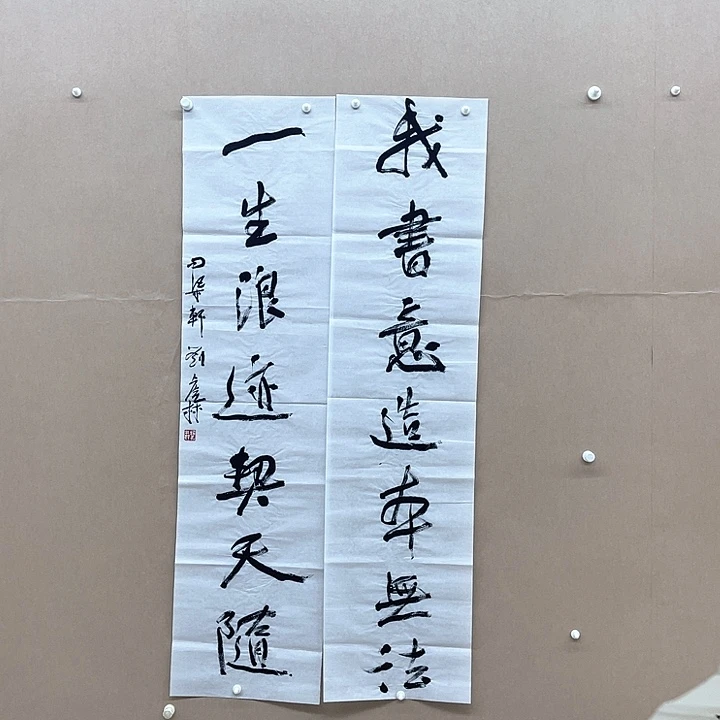 我書意造本無法
一生浪迹契天隨